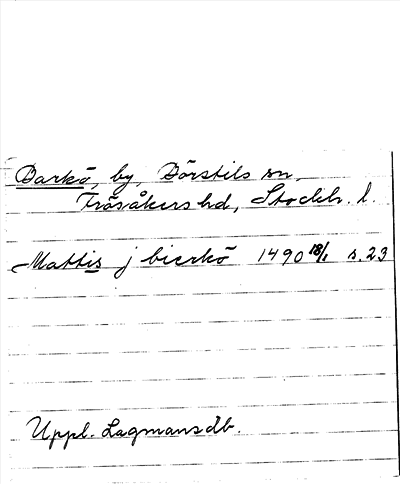 Barkö, by, Börstils sn,
Frösåkers hd, Stockh. l.
Mattis j bierkö 1490 18/1 s. 23
Uppl. Lagmansdb.